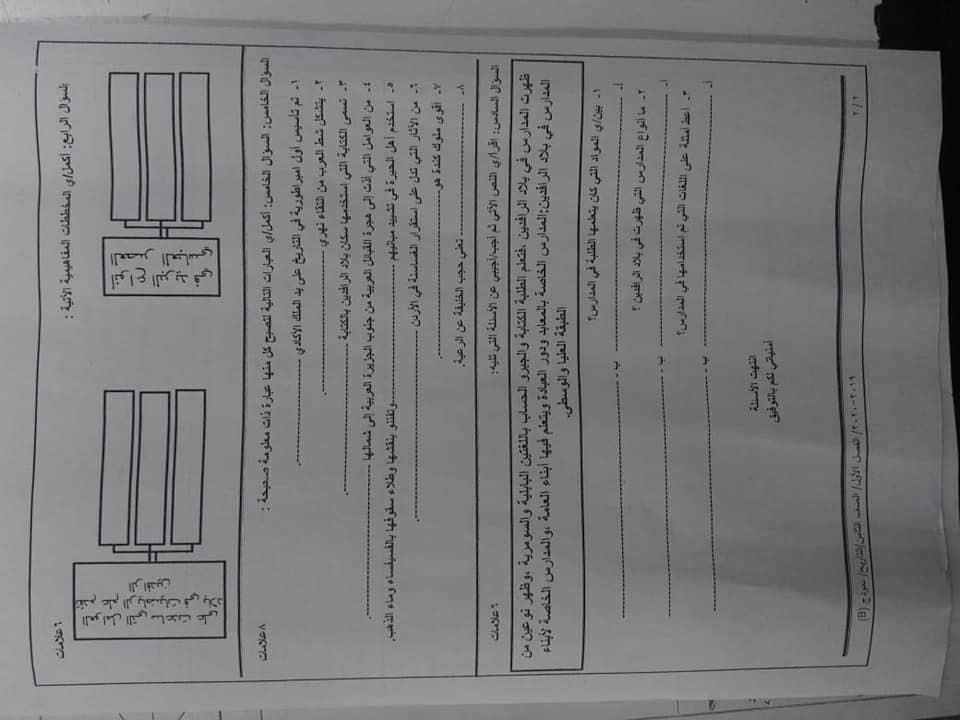 السؤال الرابع: أكمل/ي المخططات المفاهيمية الآتية :
٦ علامات
السؤال الخامس: السؤال الخامس: أكمل/ي العبارات التالية لتصبح كل منها عبارة ذات معلومة صحيحة :
٨ علامات
١- تم تأسيس أول امبراطورية في التاريخ على يد الملك الأكادي
٢- يتشكل شط العرب من التقاء نهري
٣- تسمى الكتابة التي استخدمها سكان بلاد الرافدين بالكتابة
٤- من العوامل التي أدت الى هجرة القبائل العربية من جنوب الجزيرة العربية إلى شمالها
٥- استخدم أهل الحيرة في تشييد مبانيهم وتفننو بنقشها وطلاء سقوفها بالفسيفساء وماء الذهب.
٦- من الآثار التي تدل على استقرار الغساسنة في الأردن
٧- أقوى ملوك كندة هو
٨- تعني حجب الخليفة عن الرعية.
السؤال السادس: اقرأ/ي النص الآتي ثم أجب/أجيبي عن الأسئلة التي تليه:
٦ علامات
ظهرت المدارس في بلاد الرافدين ،فتعلم الطلبة الكتابة والجبر و الحساب باللغتين البابلية والسومرية ،وظهر نوعين من
المدارس في بلاد الرافدين:المدارس الخاصة بالمعابد ودور العبادة ويتعلم فيها أبناء العامة ،والمدارس الخاصة لأبناء
الطبقة العليا والوسطى.
١- بين/ي المواد التي كان يتعلمها الطلبة في المدارس؟
أ- ب -
٢- ما أنواع المدارس التي ظهرت في بلاد الرافدين ؟
أ- ب -
٣- أعط أمثلة على اللغات التي تم استخدامها في المدارس؟
أ- ب -
انتهت الأسئلة
أمنياتي لكم بالتوفيق
٢ / ٢ ٢٠١٩-٢٠٢٠/ الفصل الأول/ الصف الثامن/التاريخ/ نموذج (B)